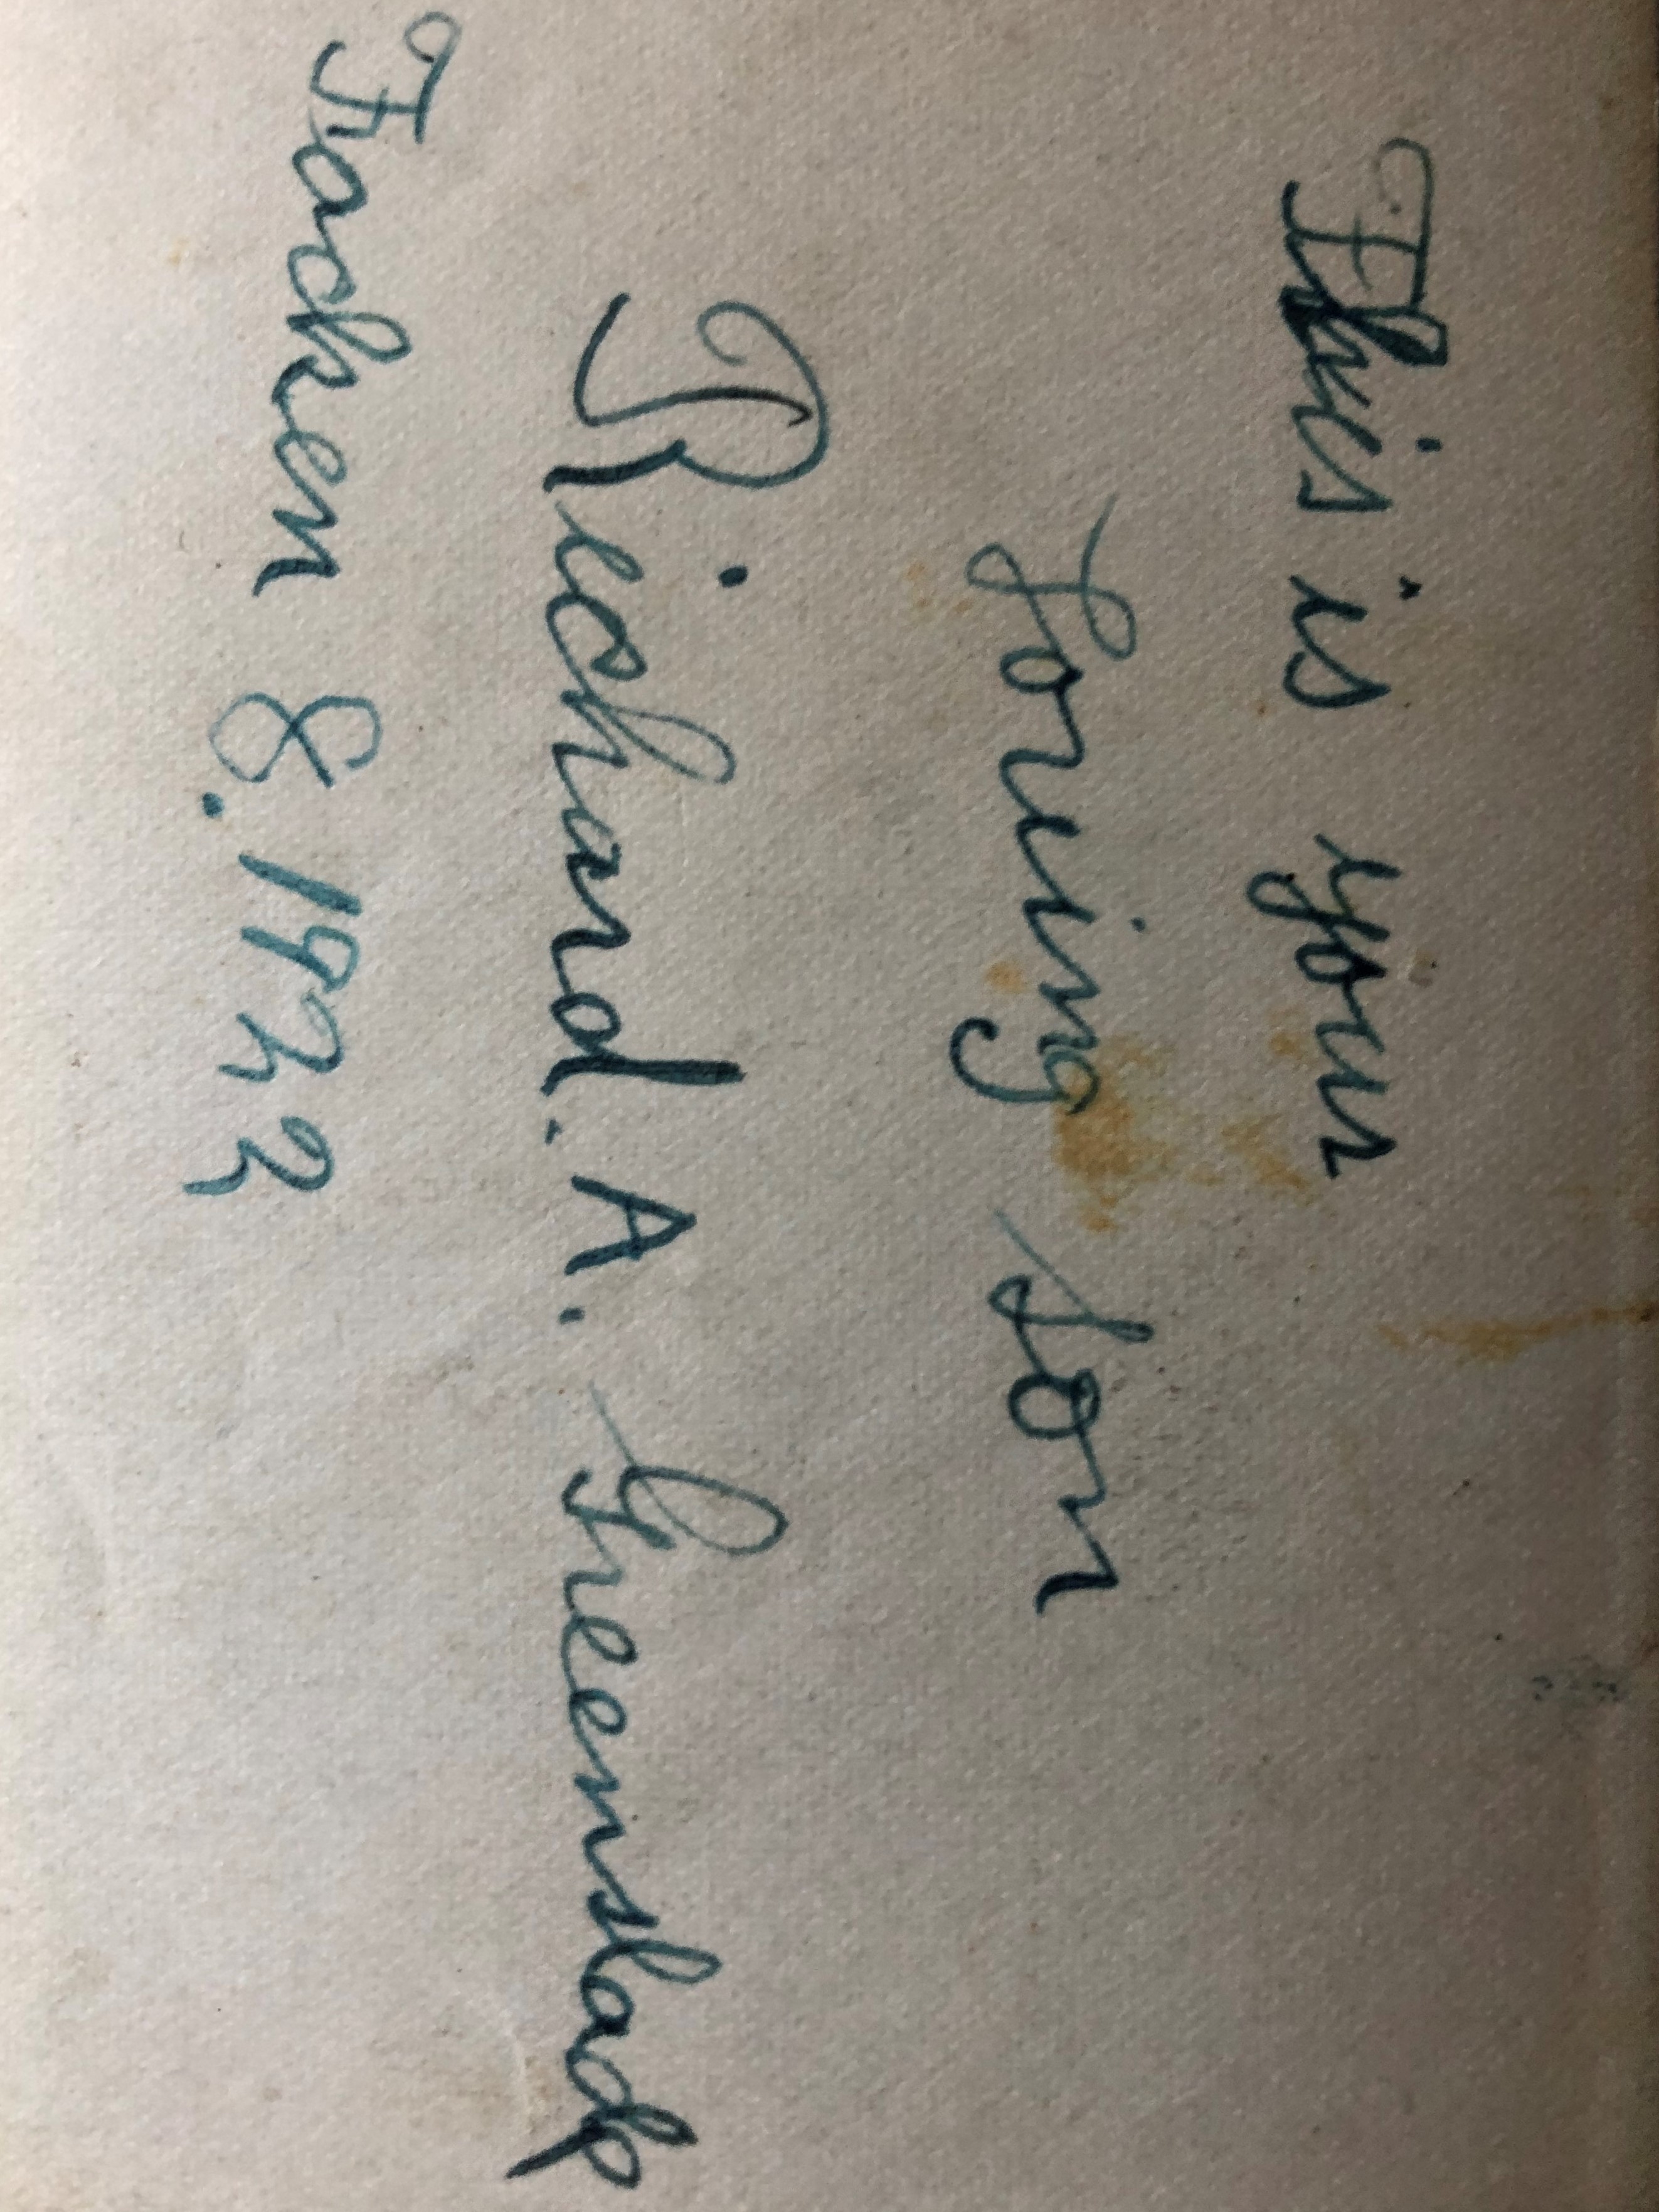 This is your
Loving Son
Richard. A. Greenslade
Tacken 8. 1922